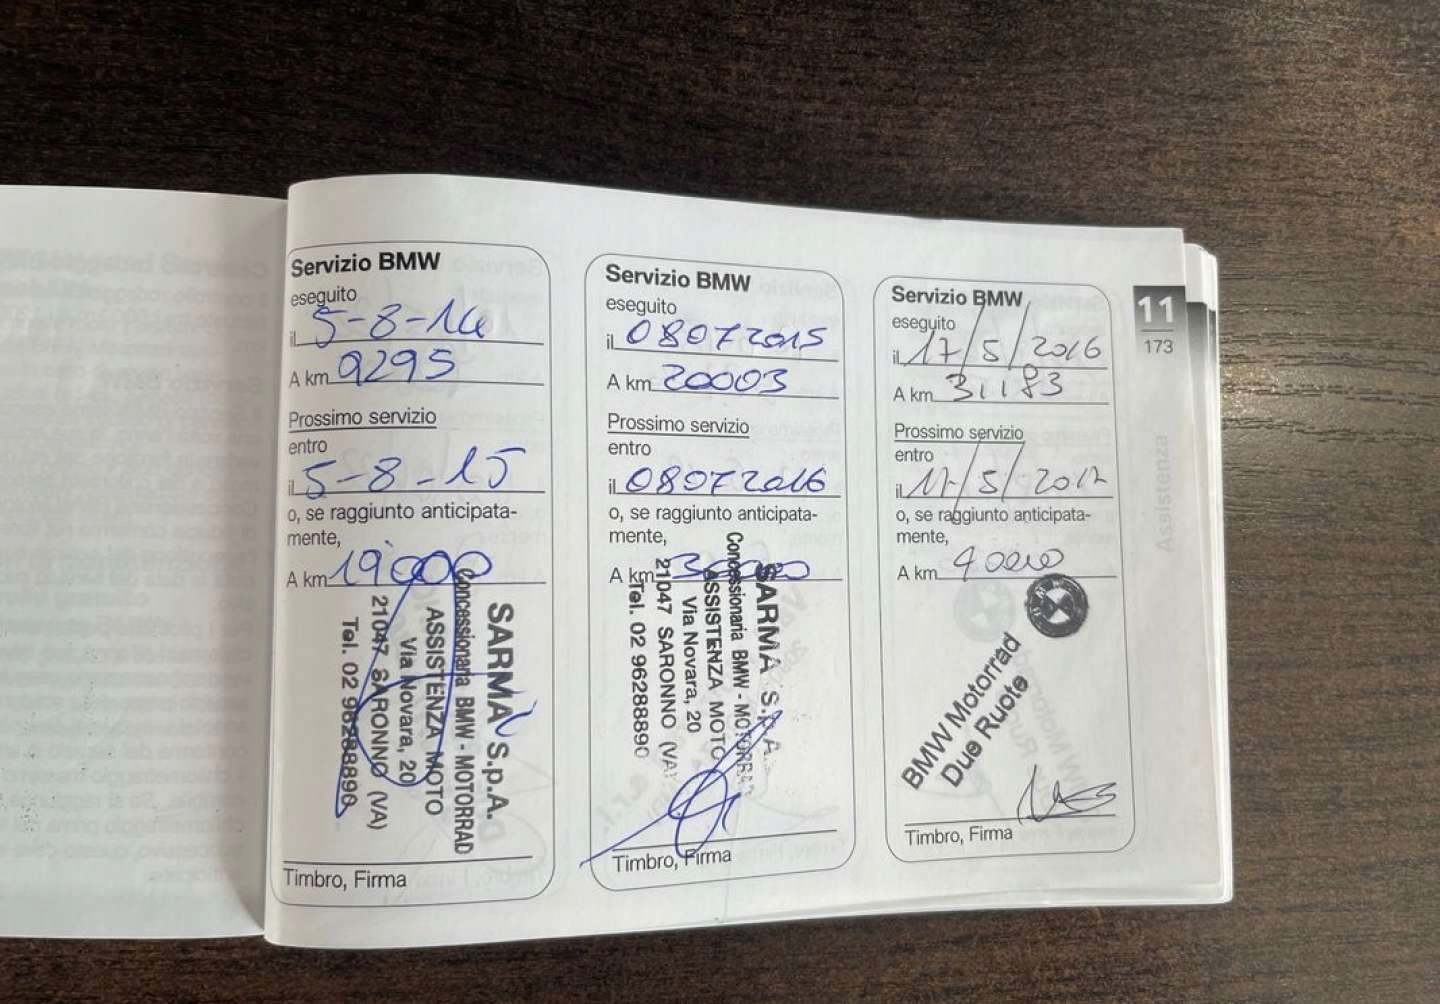 Servizio BMW
eseguito
il 5-8-14
A km 9295
Prossimo servizio
entro
il 5-8-15
o, se raggiunto anticipata-
mente,
A km 19000
SARMA S.p.A.
Concessionaria BMW - MOTORRAD
ASSISTENZA MOTO
Via Novara, 20
21047 SARONNO (VA)
Tel. 02 96288890
Timbro, Firma
Servizio BMW
eseguito
il 08072015
A km 20003
Prossimo servizio
entro
il 08072016
o, se raggiunto anticipata-
mente,
A km 30000
SARMA S.p.A.
Concessionaria BMW - MOTORRAD
ASSISTENZA MOTO
Via Novara, 20
21047 SARONNO (VA)
Tel. 02 96288890
Timbro, Firma
Servizio BMW
eseguito
il 17/5/2016
A km 31183
Prossimo servizio
entro
il 17/5/2017
o, se raggiunto anticipata-
mente,
A km 40000
BMW Motorrad
Due Ruote
Timbro, Firma
11
173
Assistenza